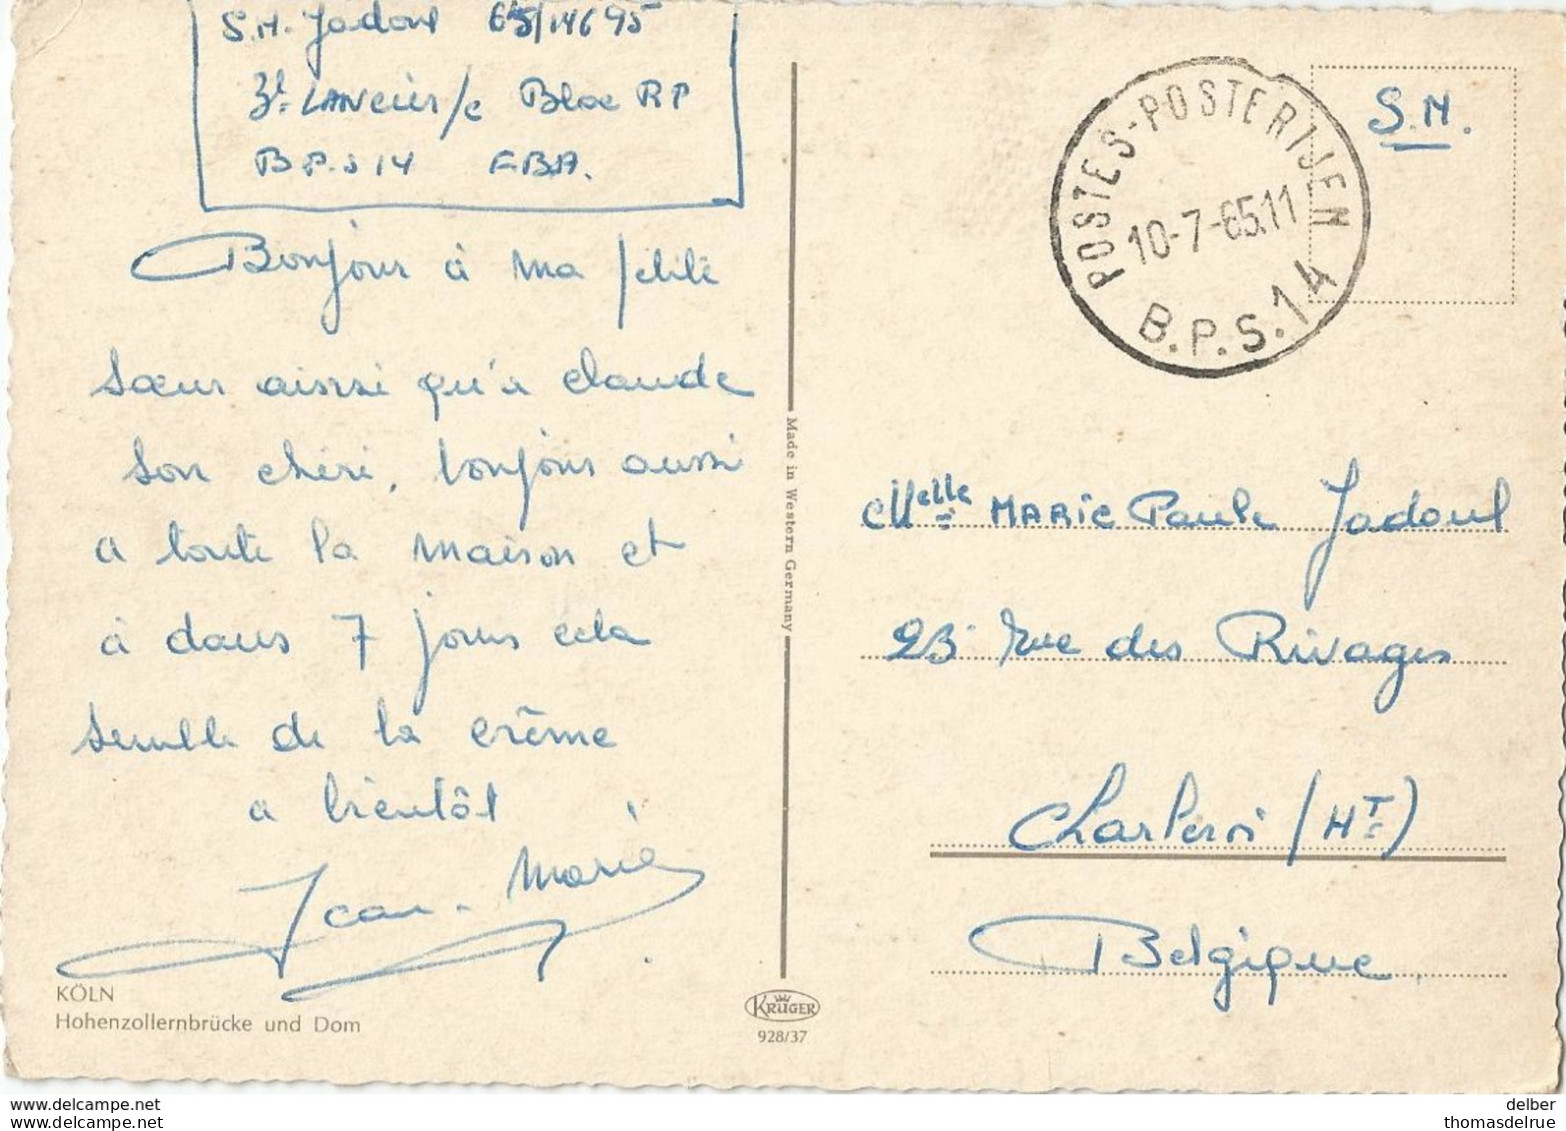 S.M. Jadoul 65/14695
3e LANCIERS/c Bloc RP
B.P.S 14 F.B.A.
Bonjour à ma petite
sœur ainsi qu'a claude
son chéri, toujours aussi
a toute la maison et
à dans 7 jours cela
semble de la crème
a bientôt
Jean-Marie
KÖLN
Hohenzollernbrücke und Dom
Made in Western Germany
KRÜGER
928/37
POSTES-POSTERIJEN
10-7-65.11
B.P.S.14
S.M.
Melle MARIE Paule Jadoul
23 rue des Rivages
Charleroi (HT)
Belgique
delcampe.net
delber
delcampe.net
thomasdelrue